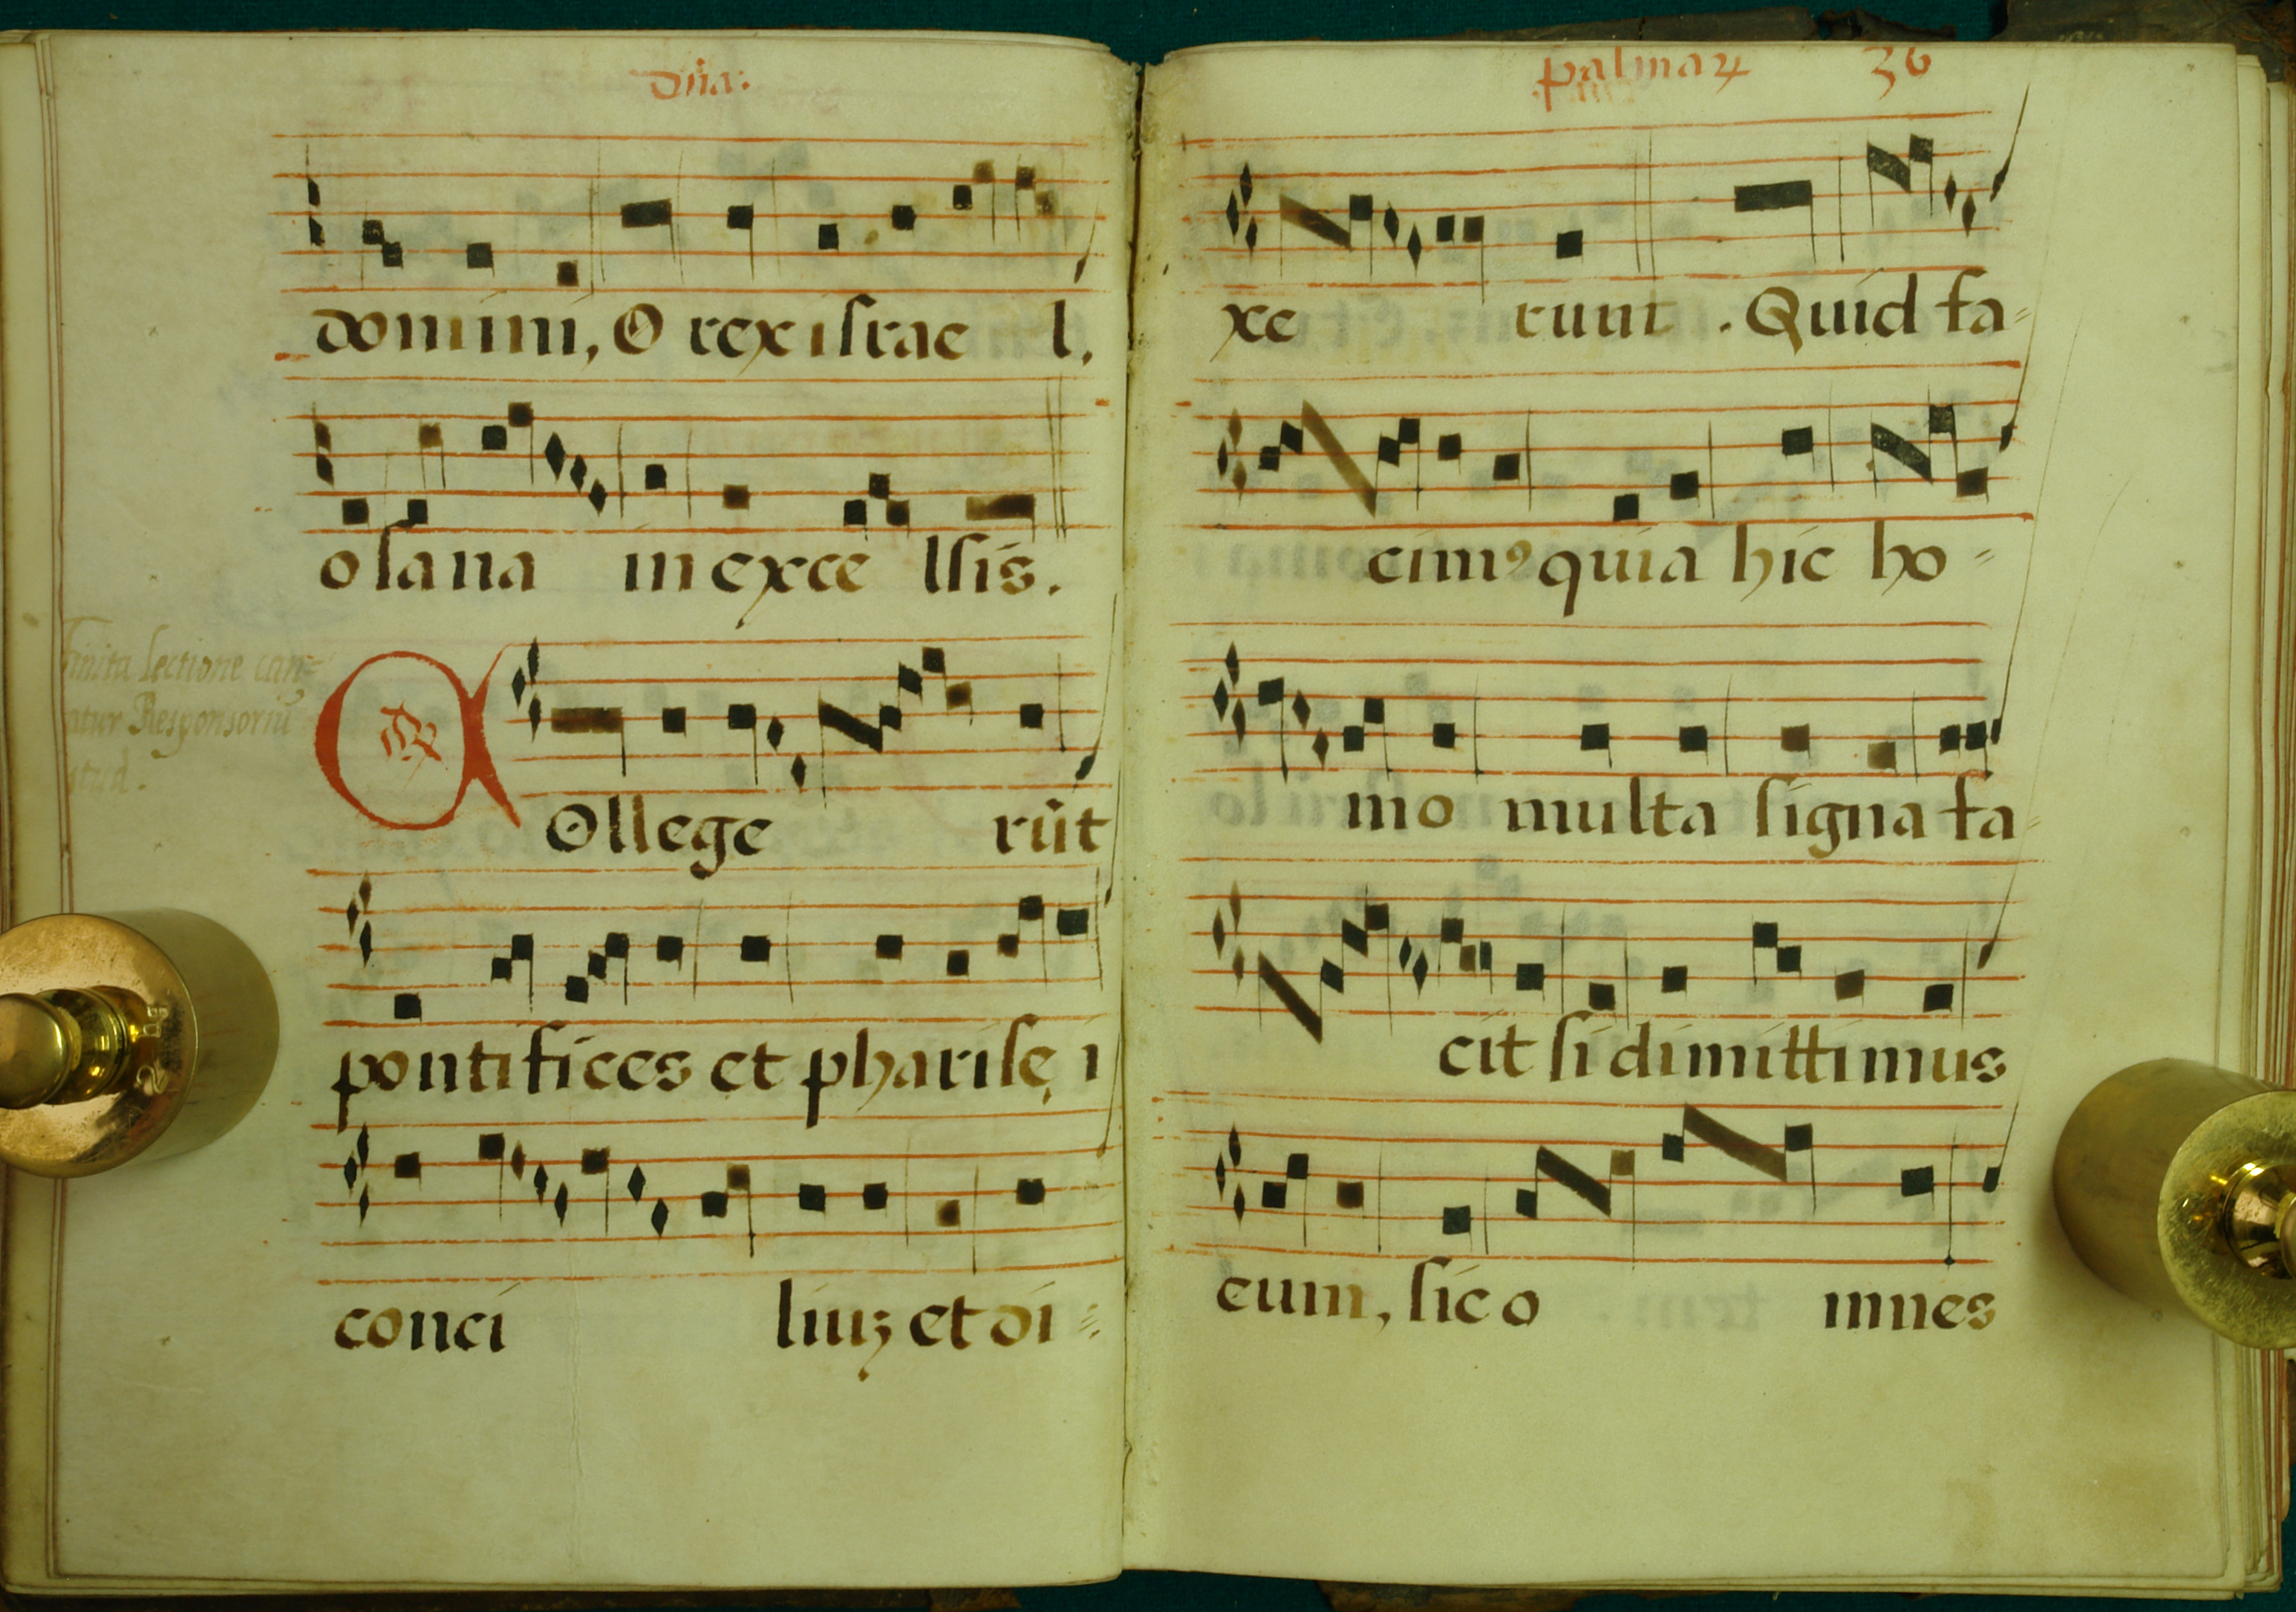 dn̄a:
domini, O rex israe l,
osana in exce lsis.
Finita lectione can=
tatur Responsoriū
COllege rūt
pontifices et pharisę i
conci liuꝫ et di=
palmaꝝ 36
xe runt. Quid fa=
cimꝰ quia hic ho=
mo multa signa fa=
cit si dimittimus
eum, sic o mnes